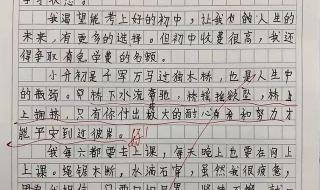 我渴望能考上好的初中，让我也触人生的
未来，有更多的选择。但初中收费很高，我还
得争取有免学费的名额。
小升初是千军万马过独木桥，也是人生中
的瓶颈。
桥下水流湍驰，桥摇摇欲坠，桥上
上拥挤，只有你付出极大的耐心和努力才
能平安到过彼岸。好！
我每六都要去上课，每天晚上也要在网上
上课。绳锯木断，水滴石穿，虽然我很疲惫，